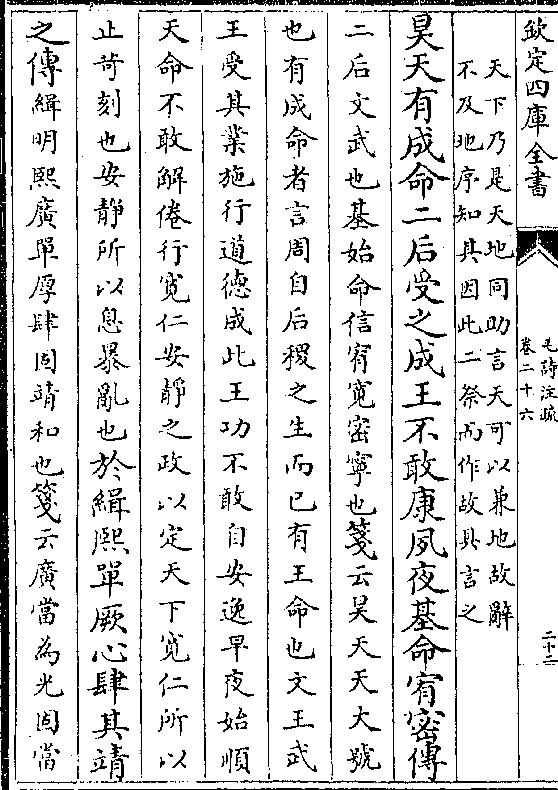 欽定四庫全書
毛詩注疏
卷二十六
二十二
天下乃是天地同助言天可以兼地故辭
不及地序知其因此二祭而作故具言之
昊天有成命二后受之成王不敢康夙夜基命宥密傳
二后文武也基始命信宥寛密寧也箋云昊天天大號
也有成命者言周自后稷之生而已有王命也文王武
王受其業施行道德成此王功不敢自安逸早夜始順
天命不敢解倦行寛仁安靜之政以定天下寛仁所以
止苛刻也安靜所以息暴亂也於緝熙單厥心肆其靖
之傳緝明熙廣單厚肆固靖和也箋云廣當為光固當